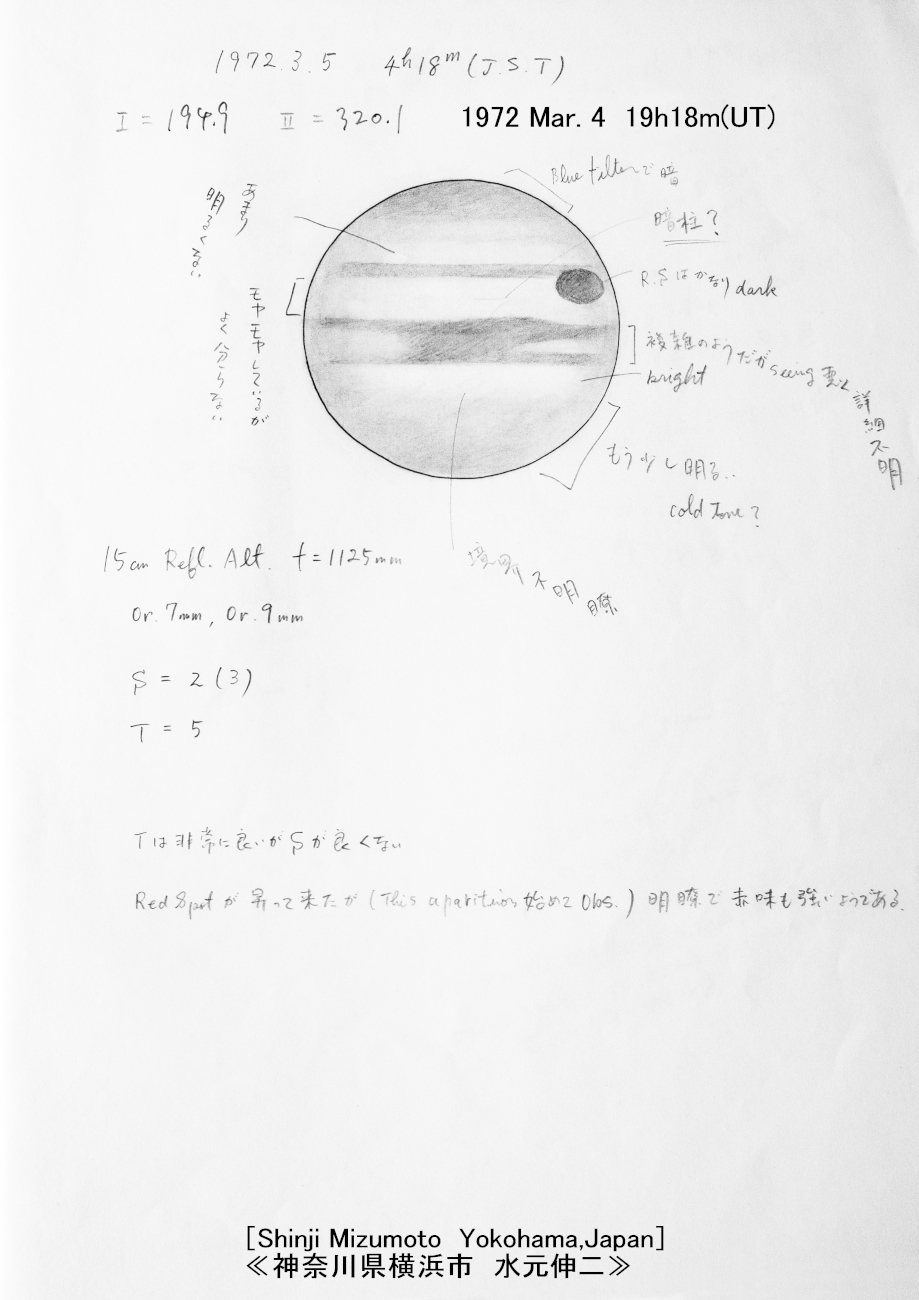 1972.3.5 4h18m (J.S.T)
I = 194.9 II = 320.1 1972 Mar. 4 19h18m(UT)
Blue filterで暗
あまり
明るくない
暗柱?
R.Sはかなり dark
モヤモヤしているが
よく分らない
複雑のようだがseeing悪く詳細不明
bright
もう少し明る..
cold Zone?
境界不明瞭
15cm Refl. Alt. f=1125mm
Or.7mm, Or.9mm
S = 2 (3)
T = 5
Tは非常に良いがSが良くない
Red Spotが昇って来たが(This aparition始めてObs.)明瞭で赤味も強いようである.
[Shinji Mizumoto Yokohama,Japan]
≪神奈川県横浜市 水元伸二≫